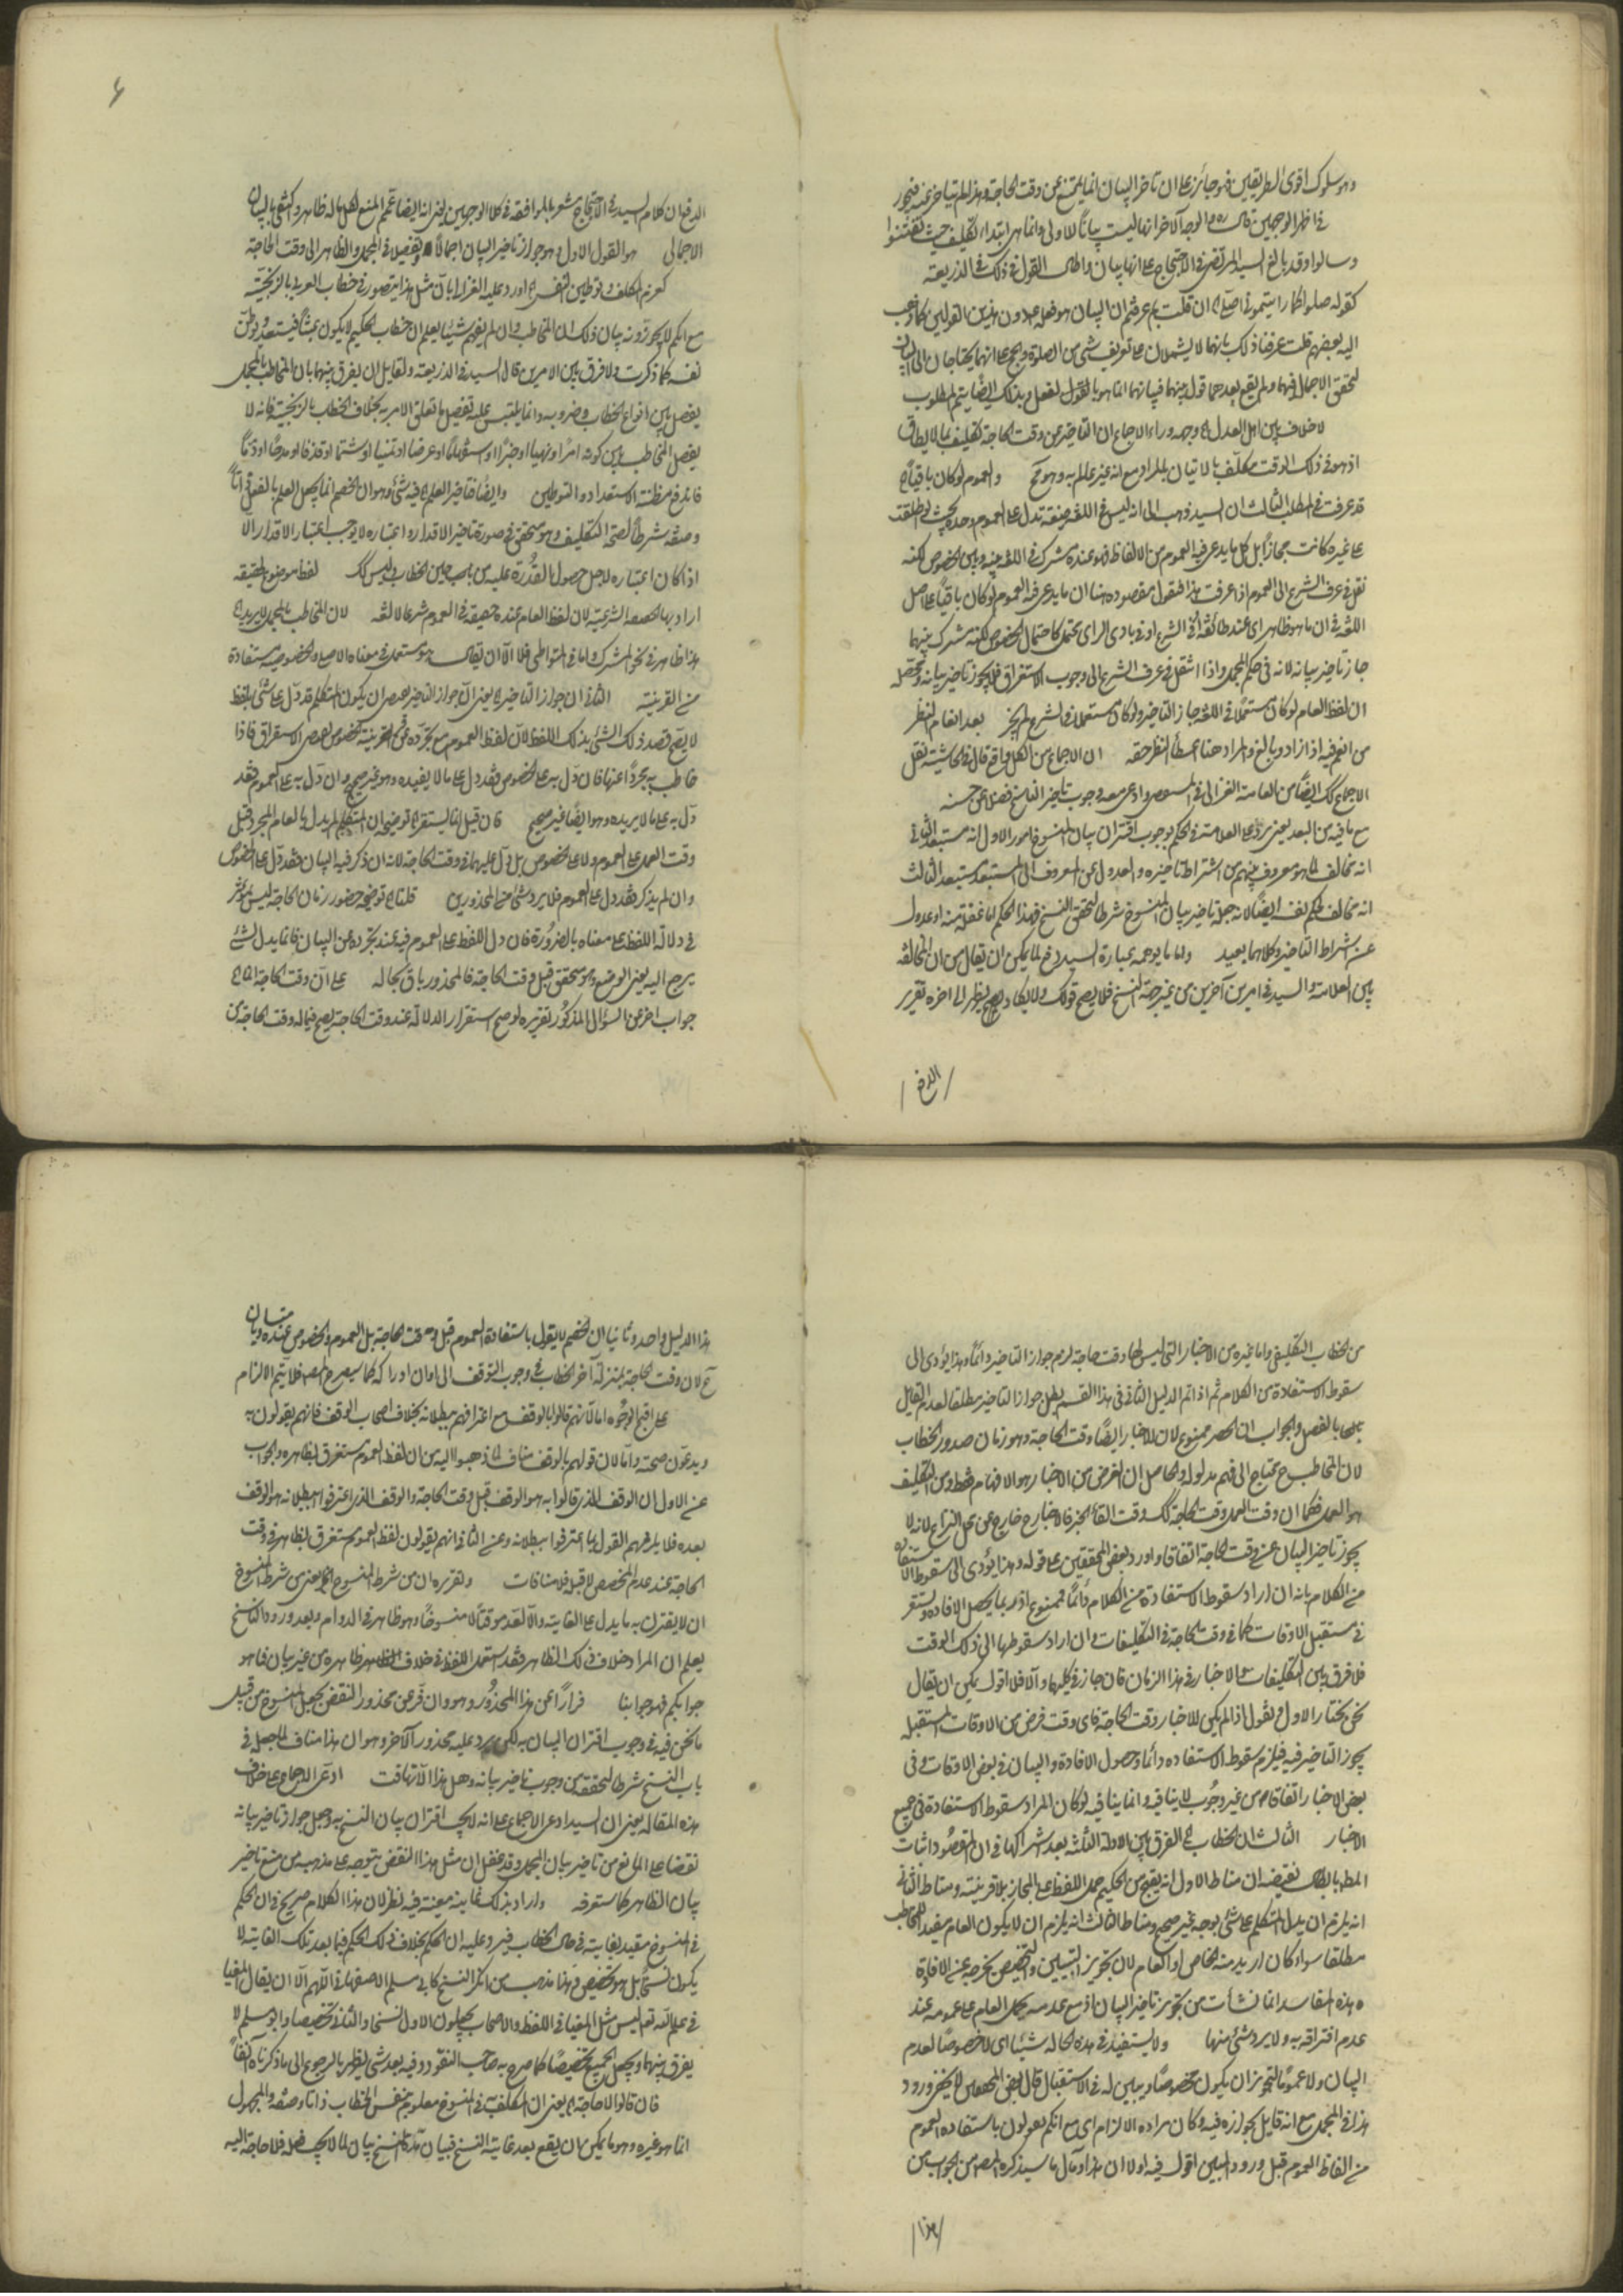 وهو سلوك اقوى الطريقين فهو جائز على ان تاخر البيان انما يمتنع عن وقت الحاجة وهذا لم يتاخر عنه فيجوز
في اظهر الوجهين قال ره م الوجه الآخر انها ليست بيانا للاولى وانما هي ابتداء تكليف حيث تعنتوا
وسالوا وقد بالغ السيد المرتضى في الاحتجاج على انها بيان واطال القول في ذلك في الذريعة
كقوله صلوا كما رايتموني اصلي ان قلت بم عرفتم ان البيان هو فعله ص دون هذين القولين كما ذهب
اليه بعضهم قلت عرفنا ذلك بانهما لا يشملان على تعريف شئ من الصلوة والحج على انهما يحتاجان الى البيان
لتحقق الاجمال فيهما ولم يقع بعدهما قول يبينهما فبيانهما انما هو بالفعل وبذلك ايضا يتم المطلوب
لا خلاف بين اهل العدل وجهه وراء الاجماع ان التاخير عن وقت الحاجة تكليف بما لا يطاق
اذ هو في ذلك الوقت مكلف بالاتيان بالمراد مع انه غير عالم به وهو مح والعموم لو كان باقيا
قد عرفت في المطلب الثالث ان السيد ذهب الى انه ليس في اللغة صيغة تدل على العموم وحده بحيث لو اطلقت
على غيره كانت مجازا بل كل ما يدعى فيه العموم من الالفاظ فهو عنده مشترك في اللغة بينه وبين الخصوص لكنه
نقل في عرف الشرع الى العموم اذا عرفت هذا فنقول مقصوده هنا ان ما يدعى فيه العموم لو كان باقيا على اصل
اللغة في ان ما هو ظاهر اى عند طائفة او في الشرع او في بادي الراى يحتمل كاحتمال الخصوص لكنه مشترك بينهما
جاز تاخير بيانه لانه في حكم المجمل واذا انتقل في عرف الشرع الى وجوب الاستغراق فلا يجوز تاخير بيانه ومحصله
ان لفظ العام لو كان مستعملا في اللغة جاز التاخير ولو كان مستعملا في الشرع لم يجز بعد انعام النظر
من انعم فيه اذا زاد وبالغ والمراد هنا اعطاء النظر حقه ان الاجماع من الكل واقع قال في الحاشية نقل
الاجماع كك ايضا من العامة الغزالي في المستصفى وادعى معه وجوب تاخير الناسخ فضلا عن حسنه
مع ما فيه من البعد يعني يرد على العلامة في الحكم بوجوب اقتران بيان المنسوخ امور الاول انه مستبعد الثاني
انه مخالف لما هو معروف بينهم من اشتراط تاخيره والعدول عن المعروف الى المستبعد مستبعد الثالث
انه مخالف لحكم نفسه ايضا لانه جعل تاخير بيان المنسوخ شرطا لتحقق النسخ فهذا الحكم اما غفلة منه او عدول
عن اشتراط التاخير وكلاهما بعيد واما ما يوهمه عبارة السيد دفع لما يمكن ان يقال من ان المخالفة
بين العلامة والسيد في امرين آخرين من غير جهة النسخ فلا يصح قولك ولا يكاد يصح لنظر الى اخره تقرير
الدفع
الدفع ان كلام السيد في الاحتجاج مشعر بالموافقة في كلا الوجهين يعني انه ايضا عمم المنع لكل ما له ظاهر واكتفى بالبيان
الاجمالي هو القول الاول وهو جواز تاخير البيان اجمالا وتفصيلا في المجمل والظاهر الى وقت الحاجة
كعزم المكلف وتوطين النفس اورد عليه الغزالي بان مثل هذا يتصور في خطاب العربي بالزنجية
مع انكم لا تجوزونه بيان ذلك ان المخاطب وان لم يفهم شيئا يعلم ان خطاب الحكيم لا يكون عبثا فيستعد ويوطن
نفسه كما ذكرت ولا فرق بين الامرين قال السيد في الذريعة ولقايل ان يفرق بينهما بان المخاطب بالمجمل
يفصل بين انواع الخطاب وضروبه وانما يلتبس عليه تفصيل ما تعلق الامر به بخلاف الخطاب بالزنجية فانه لا
يفصل المخاطب بين كونه امرا او نهيا او خبرا او استفهاما او عرضا او تمنيا او شتما او قذفا او مدحا او ذما
فاندفع مظنة الاستعداد والتوطين وايضا فتاخير العلم فيه شئ وهو ان الخصم انما يجعل العلم بالفعل اتا
وصفه شرطا لصحة التكليف وهو متحقق في صورة تاخير الاقدار واعتباره لا يوجب اعتبار الاقدار الا
اذا كان اعتباره لاجل حصول القدرة عليه من باب حين الخطاب وليس كك لفظ موضوع لحقيقة
اراد بها الحقيقة الشرعية لان لفظ العام عنده حقيقة في العموم شرعا لا لغة لان المخاطب بالمجمل لا يريد
هذا ظاهر في نحو المشترك واما في المتواطي فلا الا ان يقال هو مستعمل في معناه الاصلي والخصوصية مستفادة
من القرينة الثاني ان جواز التاخير يعني ان جواز التاخير يقتضي ان يكون المتكلم قد دل على شئ بلفظ
لا يصح قصد ذلك الشئ بذلك اللفظ لان لفظ العموم مع تجرده عن القرينة المخصصة يقتضي الاستغراق فاذا
خاطب به مجردا عنها فان دل به على الخصوص فقد دل على ما لا يفيده وهو غير صحيح وان دل به على العموم فقد
دل به على ما لا يريده وهو ايضا غير صحيح فان قيل انما يستقر توضيحه ان المتكلم لم يدل بالعام المجرد قبل
وقت العمل على العموم ولا على الخصوص بل دل عليهما في وقت الحاجة لانه ان ذكر فيه البيان فقد دل على الخصوص
وان لم يذكر فقد دل على العموم فلا يرد شئ من المحذورين قلنا توضيحه حضور زمان الحاجة ليس بمؤثر
في دلالة اللفظ على معناه بالضرورة فان دل اللفظ على العموم فيه عند تجرده عن البيان فانما يدل لشئ
يرجع اليه يعني الوضع وهو متحقق قبل وقت الحاجة فالمحذور باق بحاله على ان وقت الحاجة
جواب اخر عن السؤال المذكور تقريره لو صح استقرار الدلالة عند وقت الحاجة يصح فيما له وقت الحاجة من
من الخطاب التكليفي واما غيره من الاخبار التي ليس لها وقت حاجة لزم جواز التاخير دائما وهذا يؤدى الى
سقوط الاستفادة من الكلام ثم اذا تم الدليل الثاني في هذا القسم بطل جواز التاخير مطلقا لعدم القايل
بالفصل والجواب ان الحصر ممنوع لان للاخبار ايضا وقت الحاجة وهو زمان صدور الخطاب
لان المخاطب ح يحتاج الى فهم مدلوله والحاصل ان الغرض من الاخبار هو الافهام فقط ومن التكليف
هو العمل فكما ان وقت العمل وقت الحاجة كك وقت القاء الخبر فالاخبار ح خارج عن محل النزاع لانه لا
يجوز تاخير البيان عن وقت الحاجة اتفاقا واورد بعض المحققين على قوله وهذا يؤدى الى سقوط الاستفادة
من الكلام بانه ان اراد سقوط الاستفادة من الكلام دائما فممنوع اذ ربما يحصل الافادة ويستقر
في مستقبل الاوقات كما في وقت الحاجة في التكليفات وان اراد سقوطها الى ذلك الوقت
فلا فرق بين التكليفات والاخبار في هذا الزمان فان جاز في كليهما والا فلا اقول يمكن ان يقال
نحن نختار الاول ونقول اذا لم يكن للاخبار وقت الحاجة فاى وقت فرض من الاوقات المستقبلة
يجوز التاخير فيه فيلزم سقوط الاستفادة دائما وحصول الافادة والبيان في بعض الاوقات في
بعض الاخبار اتفاقا من غير وجوب لا ينافيه وانما ينافيه لو كان المراد سقوط الاستفادة في جميع
الاخبار الثالث ان الخطاب الفرق بين الادلة الثلثة بعد اشتراكها في ان المقصود اثبات
المط بابطال نقيضه ان مناط الاول انه يقبح من الحكيم حمل اللفظ على المجاز بلا قرينة ومناط الثاني
انه يلزم ان يدل المتكلم على شئ بوجه غير صحيح ومناط الثالث انه يلزم ان لا يكون العام مفيدا للمخاطب
مطلقا سواء كان اريد منه الخاص او العام لان تجويز التبيين والتخصيص يخرجه عن الافادة
وهذه المفاسد انما نشأت من تجويز تاخير البيان اذ مع عدمه يحمل العام على عمومه عند
عدم اقترانه به ولا يرد شئ منها ولا يستفيد في هذه الحالة شيئا اى لا خصوصا لعدم
البيان ولا عموما لتجويز ان يكون مخصوصا ويبين له في الاستقبال قال بعض المحققين لا يخفى ورود
هذا في المجمل مع انه قايل بجوازه فيه وكان مراده الالزام اى مع انكم تقولون باستفادة العموم
من الفاظ العموم قبل ورود المبين اقول فيه اولا ان هذا وما ل ما سيذكره المصنف من الجواب من
هذا
هذا الدليل واحد وثانيا ان الخصم لا يقول باستفادة العموم قبل وقت الحاجة بل العموم والخصوص عنده متساويان
ح لان وقت الحاجة بمنزلة آخر الخطاب في وجوب التوقف الى اوان ادراكه كما سيصرح به المصنف فلا يتم الالزام
على اقبح الوجوه اما لانهم قالوا بالوقف مع اعترافهم ببطلانه بخلاف اصحاب الوقف فانهم يقولون به
ويدعون صحته واما لان قولهم بالوقف مناف لما ذهبوا اليه من ان لفظ العموم مستغرق بظاهره والجواب
عن الاول ان الوقف الذي قالوا به هو الوقف قبل وقت الحاجة والوقف الذي اعترفوا ببطلانه هو الوقف
بعده فلا يلزمهم القول بما اعترفوا ببطلانه وعن الثاني انهم يقولون لفظ العموم مستغرق بظاهره في وقت
الحاجة عند عدم المخصص لا قبله فلا منافات وتقريره ان من شرط المنسوخ يعني من شرط المنسوخ
ان لا يقترن به ما يدل على الغاية والا لعد موقتا لا منسوخا وهو ظاهر في الدوام وبعد ورود الناسخ
يعلم ان المراد خلاف ذلك الظاهر فقد استعمل اللفظ في خلاف ظاهره من غير بيان فما هو
جوابكم فهو جوابنا فرارا عن هذا المحذور وهو وان فر عن محذور النقض بجعل المنسوخ من قبيل
ما نحن فيه في وجوب اقتران البيان به لكن يرد عليه محذور آخر وهو ان هذا مناف لما جعله في
باب النسخ شرطا لتحققه من وجوب تاخير بيانه وهل هذا الا تهافت ادعى الاجماع على خلاف
هذه المقالة يعني ان السيد ادعى الاجماع على انه لا يجب اقتران بيان النسخ به وجعل جواز تاخير بيانه
نقضا على المانع من تاخير بيان المجمل وقد غفل ان مثل هذا النقض يتوجه على مذهبه من منع تاخير
بيان الظاهر كما ستعرفه واراد بذلك غاية معينة فيه نظر لان هذا الكلام صريح في ان الحكم
في المنسوخ مقيد بغاية في حال الخطاب فيرد عليه ان الحكم بخلاف ذلك الحكم فيما بعد تلك الغاية لا
يكون نسخا بل هو تخصيص وهذا مذهب من انكر النسخ كابي مسلم الاصفهاني اللهم الا ان يقال المغيا
في علم الله تعالى ليس مثل المغيا في اللفظ والاصحاب يجعلون الاول نسخا والثاني تخصيصا وابو مسلم لا
يفرق بينهما ويجعل الجميع تخصيصا كما صرح به صاحب النقود وفيه بعد شئ يظهر بالرجوع الى ما ذكرناه آنفا
فان قالوا لا حاجة يعني ان المكلف به في المنسوخ معلوم من نفس الخطاب ذاتا وصفة والمجهول
انما هو غيره وهو ما يمكن ان يقع بعد غاية النسخ فبيان تلك النسخ بيان لما لا يجب فعله فلا حاجة اليه